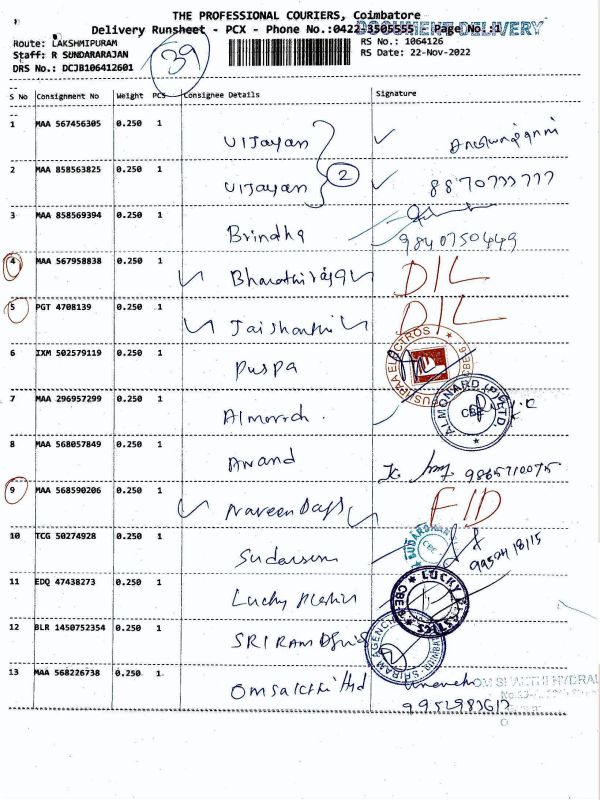 THE PROFESSIONAL COURIERS, Coimbatore
Delivery Runsheet - PCX - Phone No.:0422-3505555 Page No.:1
DOCUMENT DELIVERY
Route: LAKSHMIPURAM
RS No.: 1064126
Staff: R SUNDARARAJAN
RS Date: 22-Nov-2022
DRS No.: DCJB106412601
39
S No Consignment No Weight PCS Consignee Details Signature
1 MAA 567456305 0.250 1 Vijayan
2
2 MAA 858563825 0.250 1 Vijayan
3 MAA 858569394 0.250 1 Brindha 9840750449
4 MAA 567958838 0.250 1 Bharathiraja D/L
5 PGT 4708139 0.250 1 Jaishanthi D/L
6 IXM 502579119 0.250 1 Puspa
7 MAA 296957299 0.250 1 ALMONARD (P) LTD. CBE
8 MAA 568057849 0.250 1 Anand 9865710075
9 MAA 568590206 0.250 1 F/D
10 TCG 50274928 0.250 1 SUDARSHAN CBE
11 EDQ 47438273 0.250 1 Lucky LUCKY PLASTICS CBE
12 BLR 1450752354 0.250 1 SRIRAM SRIRAM AGENCY
13 MAA 568226738 0.250 1 Omsakthi OM SHAKTHI HYDRAU